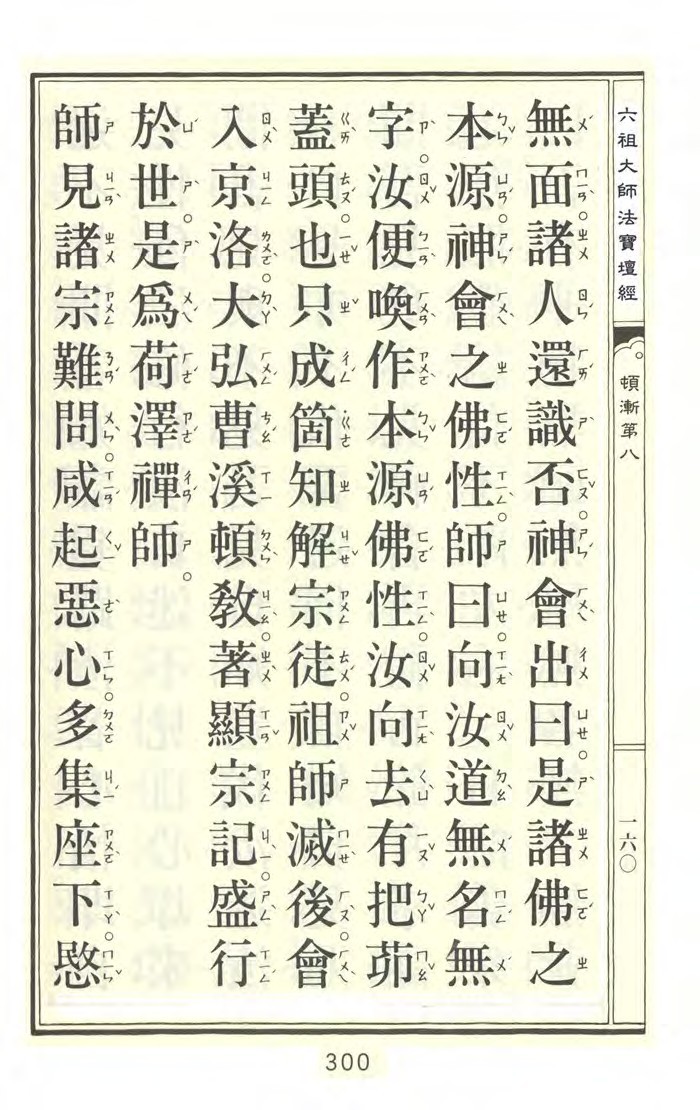 六祖大師法寶壇經
頓漸第八
一六〇
無面諸人還識否神會出曰是諸佛之
本源神會之佛性師曰向汝道無名無
字汝便喚作本源佛性汝向去有把茆
蓋頭也只成箇知解宗徒祖師滅後會
入京洛大弘曹溪頓敎著顯宗記盛行
於世是爲荷澤禪師。
師見諸宗難問咸起惡心多集座下愍
300